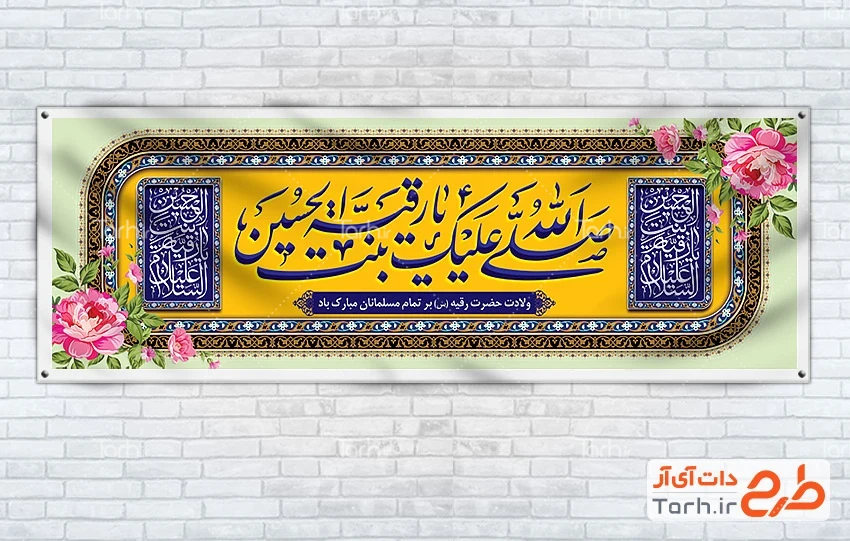 صلی الله علیک یا رقیة بنت الحسین
السلام علیک یا رقیة بنت الحسین
السلام علیک یا رقیة بنت الحسین
ولادت حضرت رقیه (س) بر تمام مسلمانان مبارک باد
طرح دات آی آر
Tarh.ir